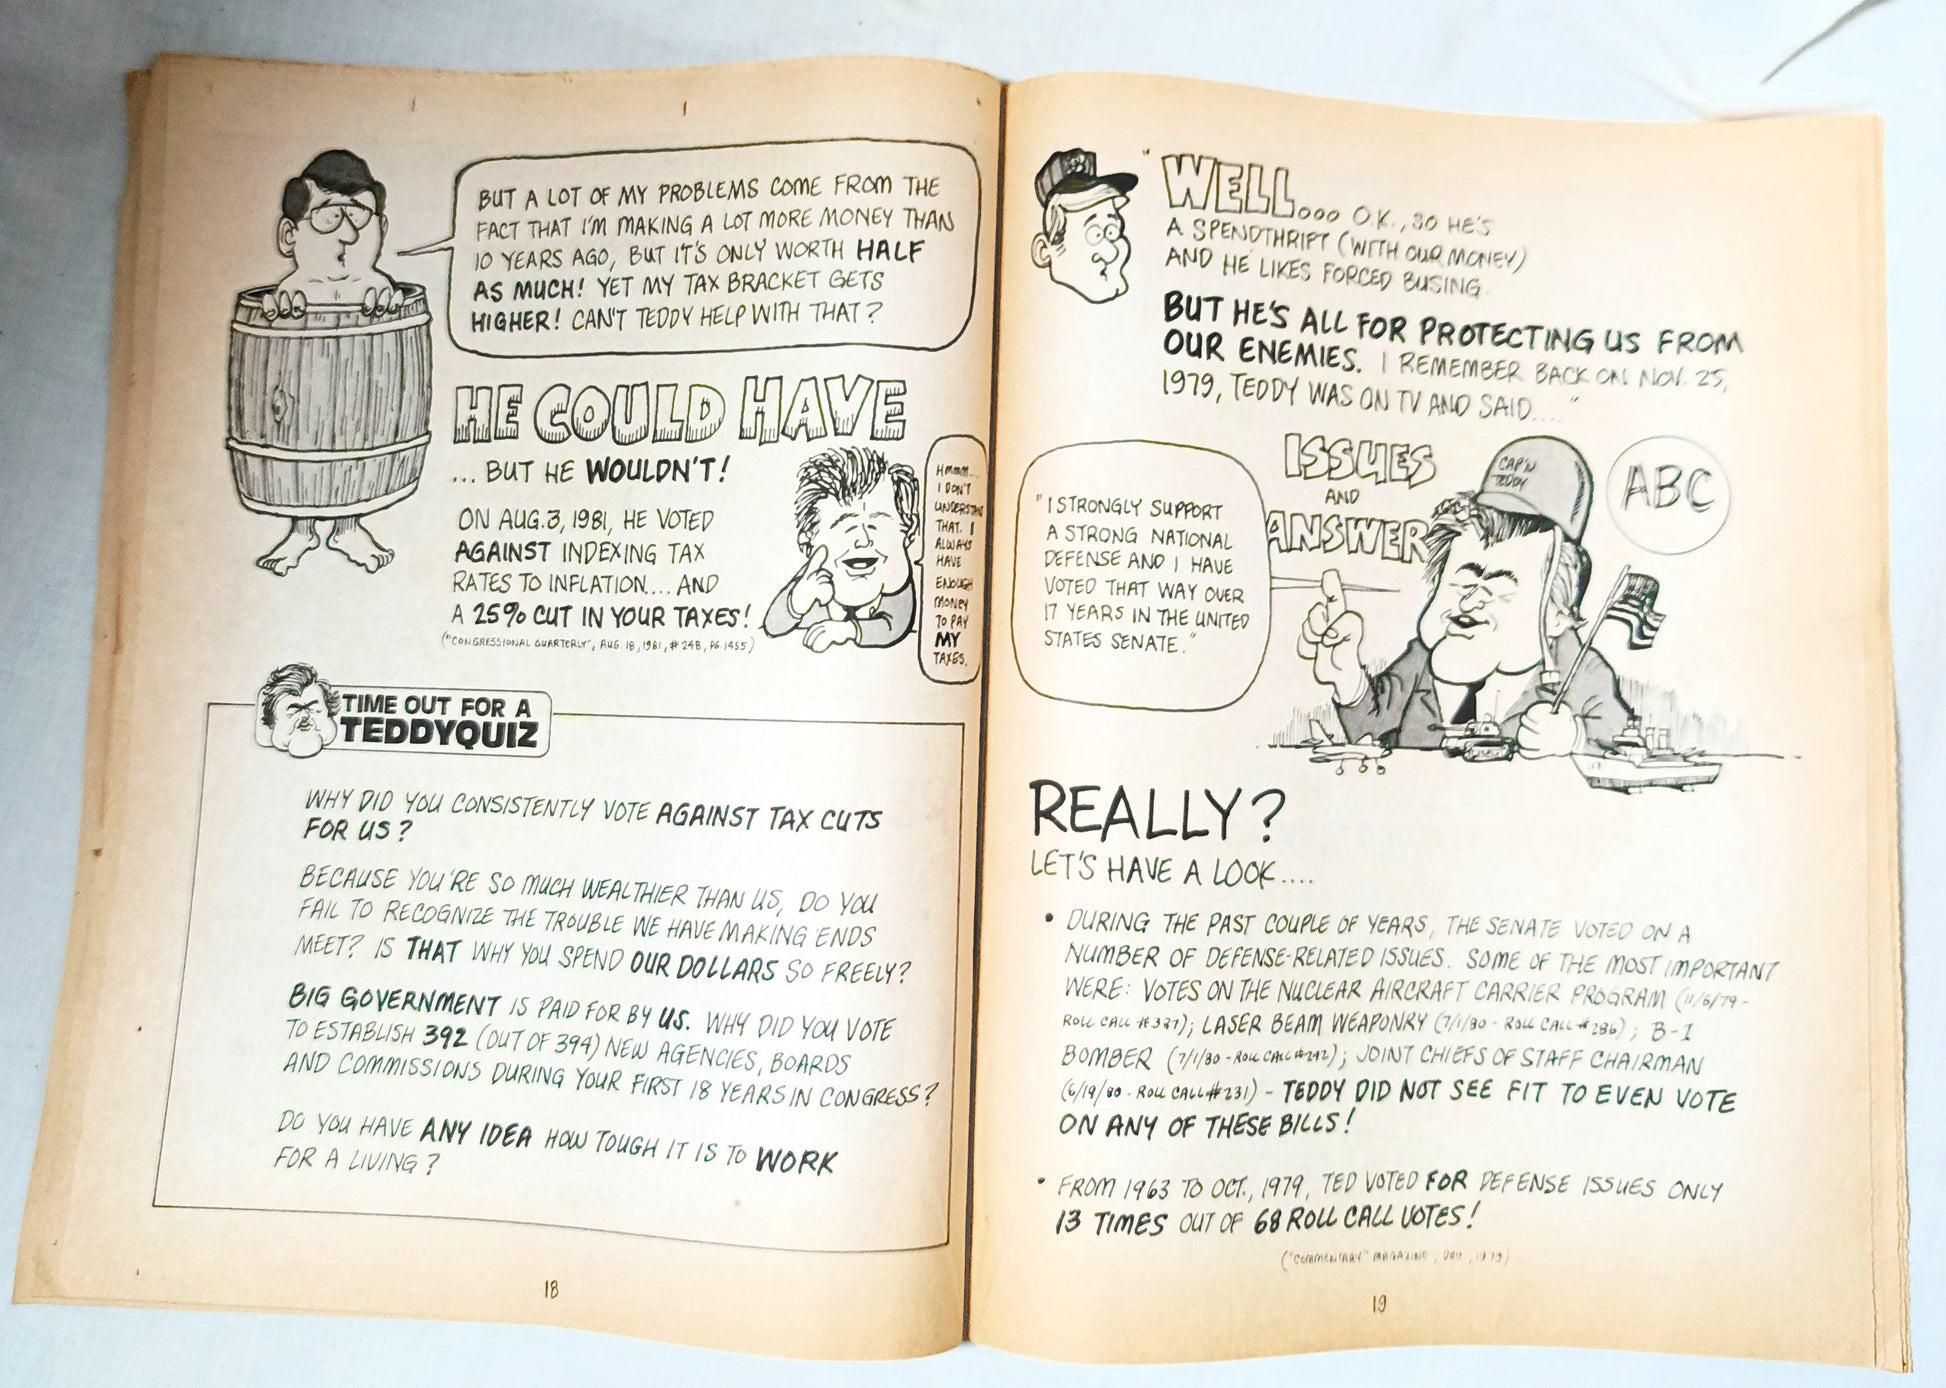 BUT A LOT OF MY PROBLEMS COME FROM THE
FACT THAT I'M MAKING A LOT MORE MONEY THAN
10 YEARS AGO, BUT IT'S ONLY WORTH HALF
AS MUCH! YET MY TAX BRACKET GETS
HIGHER! CAN'T TEDDY HELP WITH THAT?
HE COULD HAVE
... BUT HE WOULDN'T!
ON AUG. 3, 1981, HE VOTED
AGAINST INDEXING TAX
RATES TO INFLATION.... AND
A 25% CUT IN YOUR TAXES!
("CONGRESSIONAL QUARTERLY", AUG. 18, 1981, #248, PG. 1455)
HMMM...
I DON'T
UNDERSTAND
THAT. I
ALWAYS
HAVE
ENOUGH
MONEY
TO PAY
MY
TAXES.
TIME OUT FOR A
TEDDYQUIZ
WHY DID YOU CONSISTENTLY VOTE AGAINST TAX CUTS
FOR US?
BECAUSE YOU'RE SO MUCH WEALTHIER THAN US, DO YOU
FAIL TO RECOGNIZE THE TROUBLE WE HAVE MAKING ENDS
MEET? IS THAT WHY YOU SPEND OUR DOLLARS SO FREELY?
BIG GOVERNMENT IS PAID FOR BY US. WHY DID YOU VOTE
TO ESTABLISH 392 (OUT OF 394) NEW AGENCIES, BOARDS
AND COMMISSIONS DURING YOUR FIRST 18 YEARS IN CONGRESS?
DO YOU HAVE ANY IDEA HOW TOUGH IT IS TO WORK
FOR A LIVING?
18
"WELL... O.K., SO HE'S
A SPENDTHRIFT (WITH OUR MONEY)
AND HE LIKES FORCED BUSING.
BUT HE'S ALL FOR PROTECTING US FROM
OUR ENEMIES. I REMEMBER BACK ON NOV. 25,
1979, TEDDY WAS ON TV AND SAID...."
ISSUES
AND
ANSWER
CAP'N
TEDDY
ABC
"I STRONGLY SUPPORT
A STRONG NATIONAL
DEFENSE AND I HAVE
VOTED THAT WAY OVER
17 YEARS IN THE UNITED
STATES SENATE."
REALLY?
LET'S HAVE A LOOK....
• DURING THE PAST COUPLE OF YEARS, THE SENATE VOTED ON A
NUMBER OF DEFENSE-RELATED ISSUES. SOME OF THE MOST IMPORTANT
WERE: VOTES ON THE NUCLEAR AIRCRAFT CARRIER PROGRAM (11/6/79-
ROLL CALL #387); LASER BEAM WEAPONRY (7/1/80 - ROLL CALL #286); B-1
BOMBER (7/1/80 - ROLL CALL #292); JOINT CHIEFS OF STAFF CHAIRMAN
(6/19/80 - ROLL CALL #231) - TEDDY DID NOT SEE FIT TO EVEN VOTE
ON ANY OF THESE BILLS!
• FROM 1963 TO OCT., 1979, TED VOTED FOR DEFENSE ISSUES ONLY
13 TIMES OUT OF 68 ROLL CALL VOTES!
("COMMENTARY" MAGAZINE, , 1979)
19